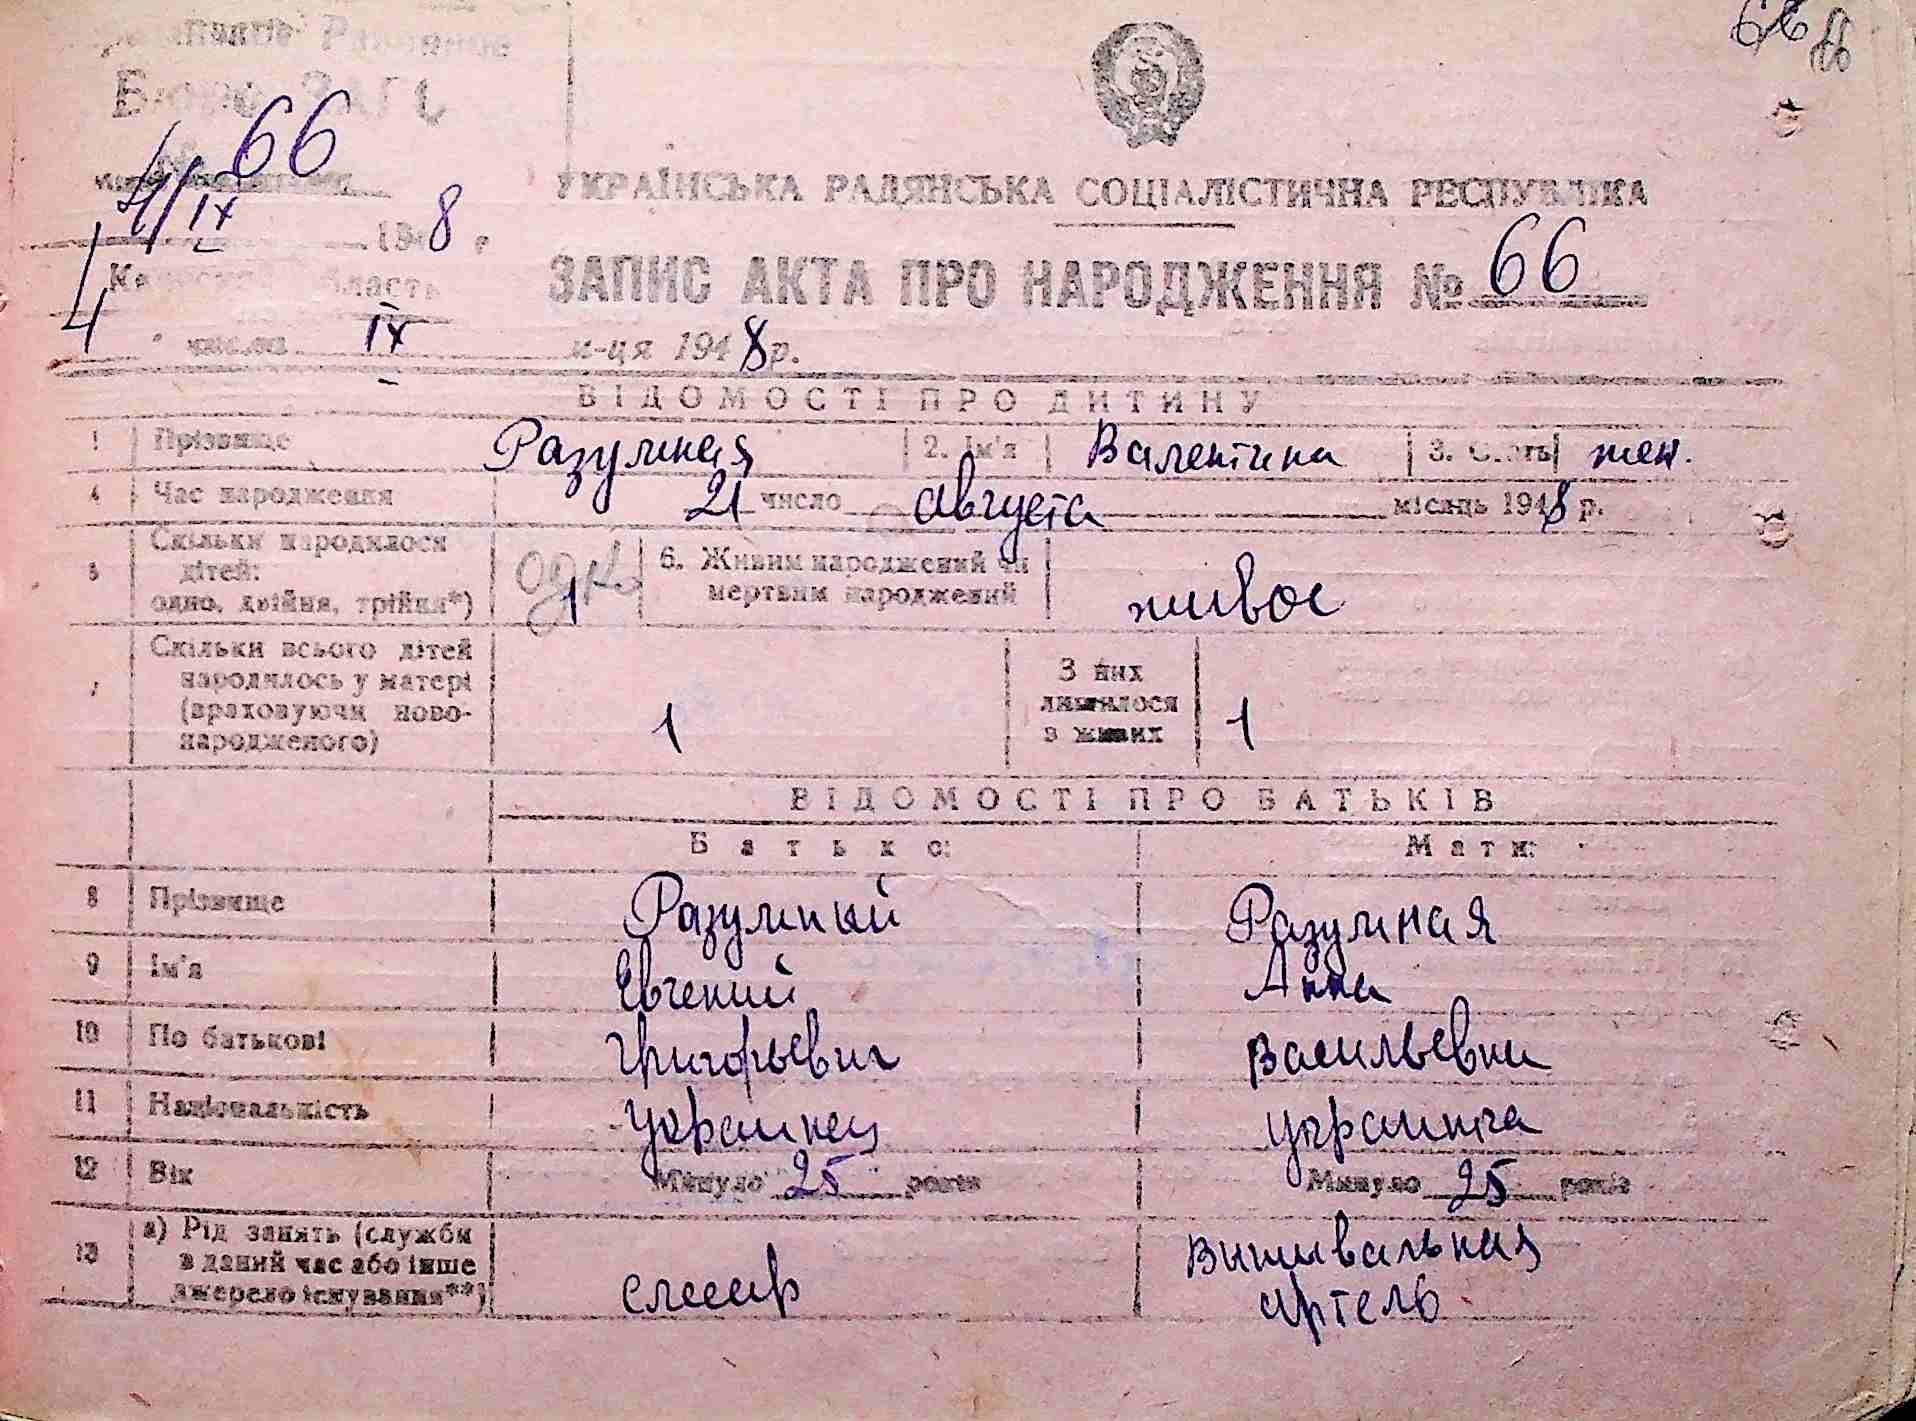 66
Бюро ЗАГС
66
4/IX
1948 р.
УКРАЇНСЬКА РАДЯНСЬКА СОЦІАЛІСТИЧНА РЕСПУБЛІКА
ЗАПИС АКТА ПРО НАРОДЖЕННЯ № 66
область
4 числа IX м-ця 1948 р.
ВІДОМОСТІ ПРО ДИТИНУ
1 Прізвище Разумная 2. Ім'я Валентина 3. Стать жен.
4 Час народження 21 число августа місяць 1948 р.
5 Скільки народилося дітей: одно, двійня, трійня*) 1 одно 6. Живим народжений чи мертвим народжений живое
7 Скільки всього дітей народилось у матері (враховуючи новонародженого) 1 З них лишилося в живих 1
ВІДОМОСТІ ПРО БАТЬКІВ
Батько: Мати:
8 Прізвище Разумный Разумная
9 Ім'я Евгений Анна
10 По батькові Григорьевич Васильевна
11 Національність Украинец украинка
12 Вік Минуло 25 років Минуло 25 років
13 а) Рід занять (служби в даний час або інше джерело існування**) слесарь Вышивальная артель